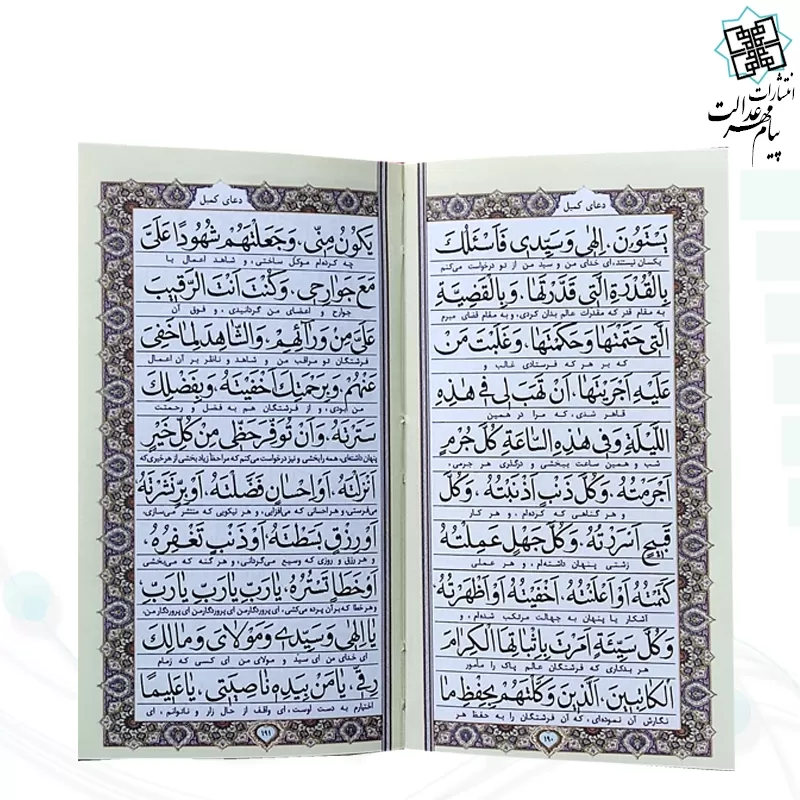 انتشارات
پیام مهر عدالت
دعای کمیل
یَسْتَوُونَ. اِلٰهی وَسَیِّدی فَاَسْئَلُکَ
یکسان نیستند، ای خدای من و سید من از تو درخواست می‌کنم
بِالْقُدْرَةِ الَّتی قَدَّرْتَهٰا، وَبِالْقَضِیَّةِ
به مقام قدر که مقدرات عالم بدان کردی، و به مقام قضای مبرم
الَّتی حَتَمْتَهٰا وَحَکَمْتَهٰا، وَغَلَبْتَ مَنْ
که بر هر که فرستادی غالب و
عَلَیْهِ اَجْرَیْتَهٰا، اَنْ تَهَبَ لی فی هٰذِهِ
قاهر شدی، که مرا در همین
اللَّیْلَةِ وَفی هٰذِهِ السّٰاعَةِ کُلَّ جُرْمٍ
شب و همین ساعت ببخشی و درگذری هر جرمی،
اَجْرَمْتُهُ، وَکُلَّ ذَنْبٍ اَذْنَبْتُهُ، وَکُلَّ
و هر گناهی که کرده‌ام، و هر کار
قَبیحٍ اَسْرَرْتُهُ، وَکُلَّ جَهْلٍ عَمِلْتُهُ
زشتی پنهان داشته‌ام، و هر عملی
کَتَمْتُهُ اَوْ اَعْلَنْتُهُ، اَخْفَیْتُهُ اَوْ اَظْهَرْتُهُ،
آشکار یا پنهان به جهالت مرتکب شده‌ام، و
وَکُلَّ سَیِّئَةٍ اَمَرْتَ بِاِثْبٰاتِهَا الْکِرٰامَ
هر بدکاری که فرشتگان عالم پاک را مأمور
الْکٰاتِبینَ، الَّذینَ وَکَّلْتَهُمْ بِحِفْظِ مٰا
نگارش آن نموده‌ای، که آن فرشتگان را به حفظ هر
۱۹۰
دعای کمیل
یَکُونُ مِنّی، وَجَعَلْتَهُمْ شُهُودًا عَلَیَّ
چه کرده‌ام موکل ساختی، و شاهد اعمال با
مَعَ جَوٰارِحی، وَکُنْتَ اَنْتَ الرَّقیبَ
جوارح و اعضای من گردانیدی، و فوق آن
عَلَیَّ مِنْ وَرٰآئِهِمْ، وَالشّٰاهِدَ لِمٰا خَفِیَ
فرشتگان تو مراقب من و شاهد و ناظر بر آن اعمال
عَنْهُمْ، وَبِرَحْمَتِکَ اَخْفَیْتَهُ، وَبِفَضْلِکَ
من بودی، و از فرشتگان هم به فضل و رحمتت
سَتَرْتَهُ، وَاَنْ تُوَفِّرَ حَظّی مِنْ کُلِّ خَیْرٍ
پنهان داشته‌ای، همه را ببخشی و نیز درخواست می‌کنم که مرا حظ زیاد بخشی از هر خیری که
اَنْزَلْتَهُ، اَوْ اِحْسٰانٍ فَضَّلْتَهُ، اَوْ بِرٍّ نَشَرْتَهُ
می‌فرستی و هر احسانی که می‌افزایی، و هر نیکویی که منتشر می‌سازی،
اَوْ رِزْقٍ بَسَطْتَهُ، اَوْ ذَنْبٍ تَغْفِرُهُ،
و هر رزق و روزی که وسیع می‌گردانی، و هر گنه که می‌بخشی
اَوْ خَطَاٍ تَسْتُرُهُ، یٰا رَبِّ یٰا رَبِّ یٰا رَبِّ
و هر خطا که بر آن پرده می‌کشی، ای پروردگار من ای پروردگار من ای پروردگار من،
یٰا اِلٰهی وَسَیِّدی وَمَوْلٰایَ وَمٰالِکَ
ای خدای من ای سید و مولای من ای کسی که زمام
رِقّی، یٰا مَنْ بِیَدِهِ نٰاصِیَتی، یٰا عَلیمًا
اختیارم به دست اوست، ای واقف از حال زار و ناتوانم، ای
۱۹۱